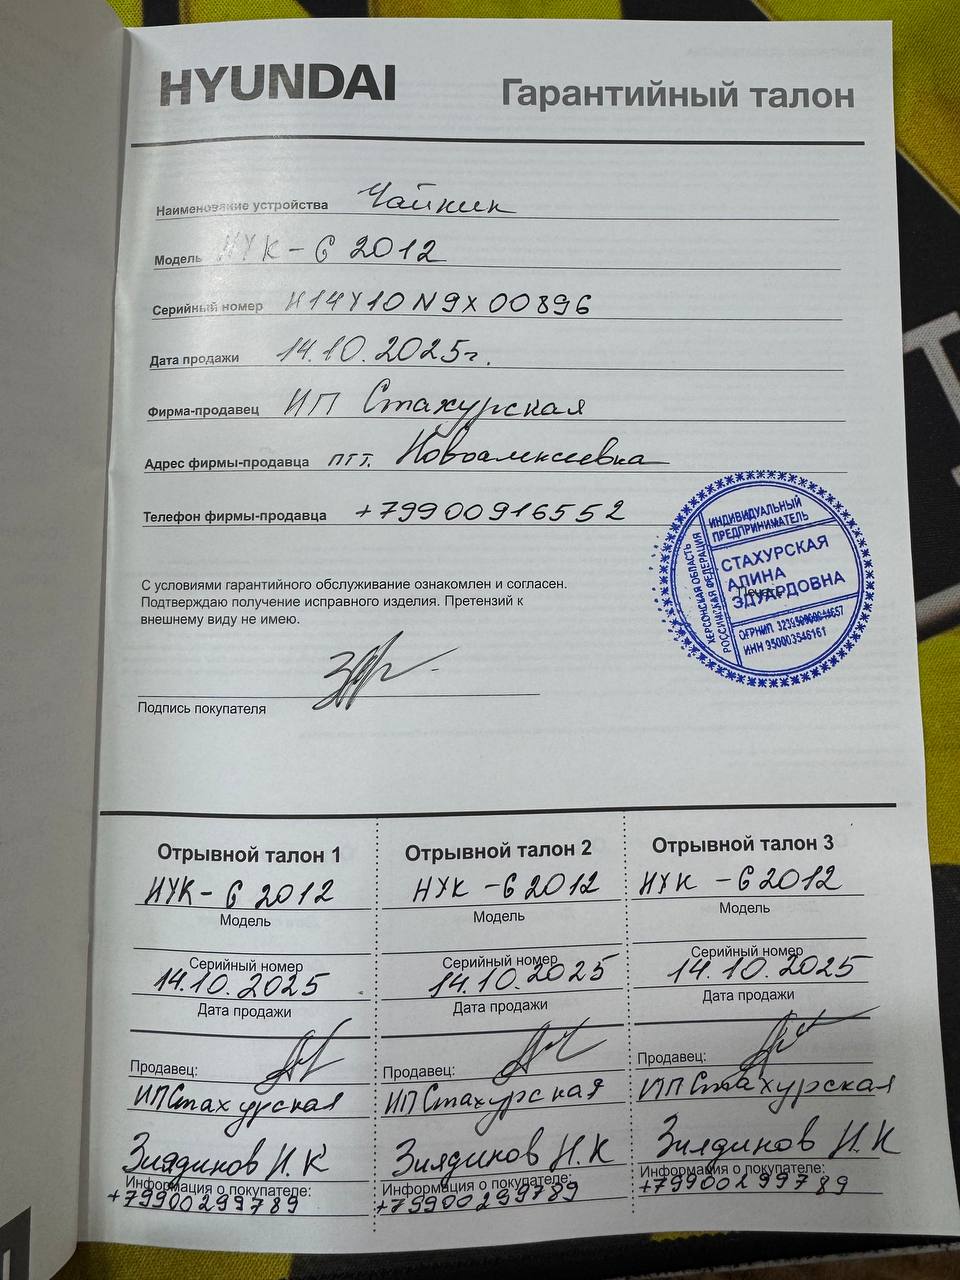 HYUNDAI
Гарантийный талон
Наименование устройства Чайник
Модель HYK-G 2012
Серийный номер H14Y10N9X00896
Дата продажи 14.10.2025г.
Фирма-продавец ИП Стахурская
Адрес фирмы-продавца пгт. Новоалексеевка
Телефон фирмы-продавца +79900916552
ИНДИВИДУАЛЬНЫЙ
ПРЕДПРИНИМАТЕЛЬ
СТАХУРСКАЯ
АЛИНА
ЭДУАРДОВНА
ОГРНИП
ИНН 950003546161
ХЕРСОНСКАЯ ОБЛАСТЬ
РОССИЙСКАЯ ФЕДЕРАЦИЯ
С условиями гарантийного обслуживание ознакомлен и согласен.
Подтверждаю получение исправного изделия. Претензий к
внешнему виду не имею.
Подпись покупателя
Отрывной талон 1
HYK-G 2012
Модель
Серийный номер
14.10.2025
Дата продажи
Продавец:
ИП Стахурская
Зиядинов Н.К
Информация о покупателе:
+79900299789
Отрывной талон 2
HYK-G2012
Модель
Серийный номер
14.10.2025
Дата продажи
Продавец:
ИП Стахурская
Зиядинов Н.К
Информация о покупателе:
+79900299789
Отрывной талон 3
HYK-G2012
Модель
Серийный номер
14.10.2025
Дата продажи
Продавец:
ИП Стахурская
Зиядинов Н.К
Информация о покупателе:
+79900299789